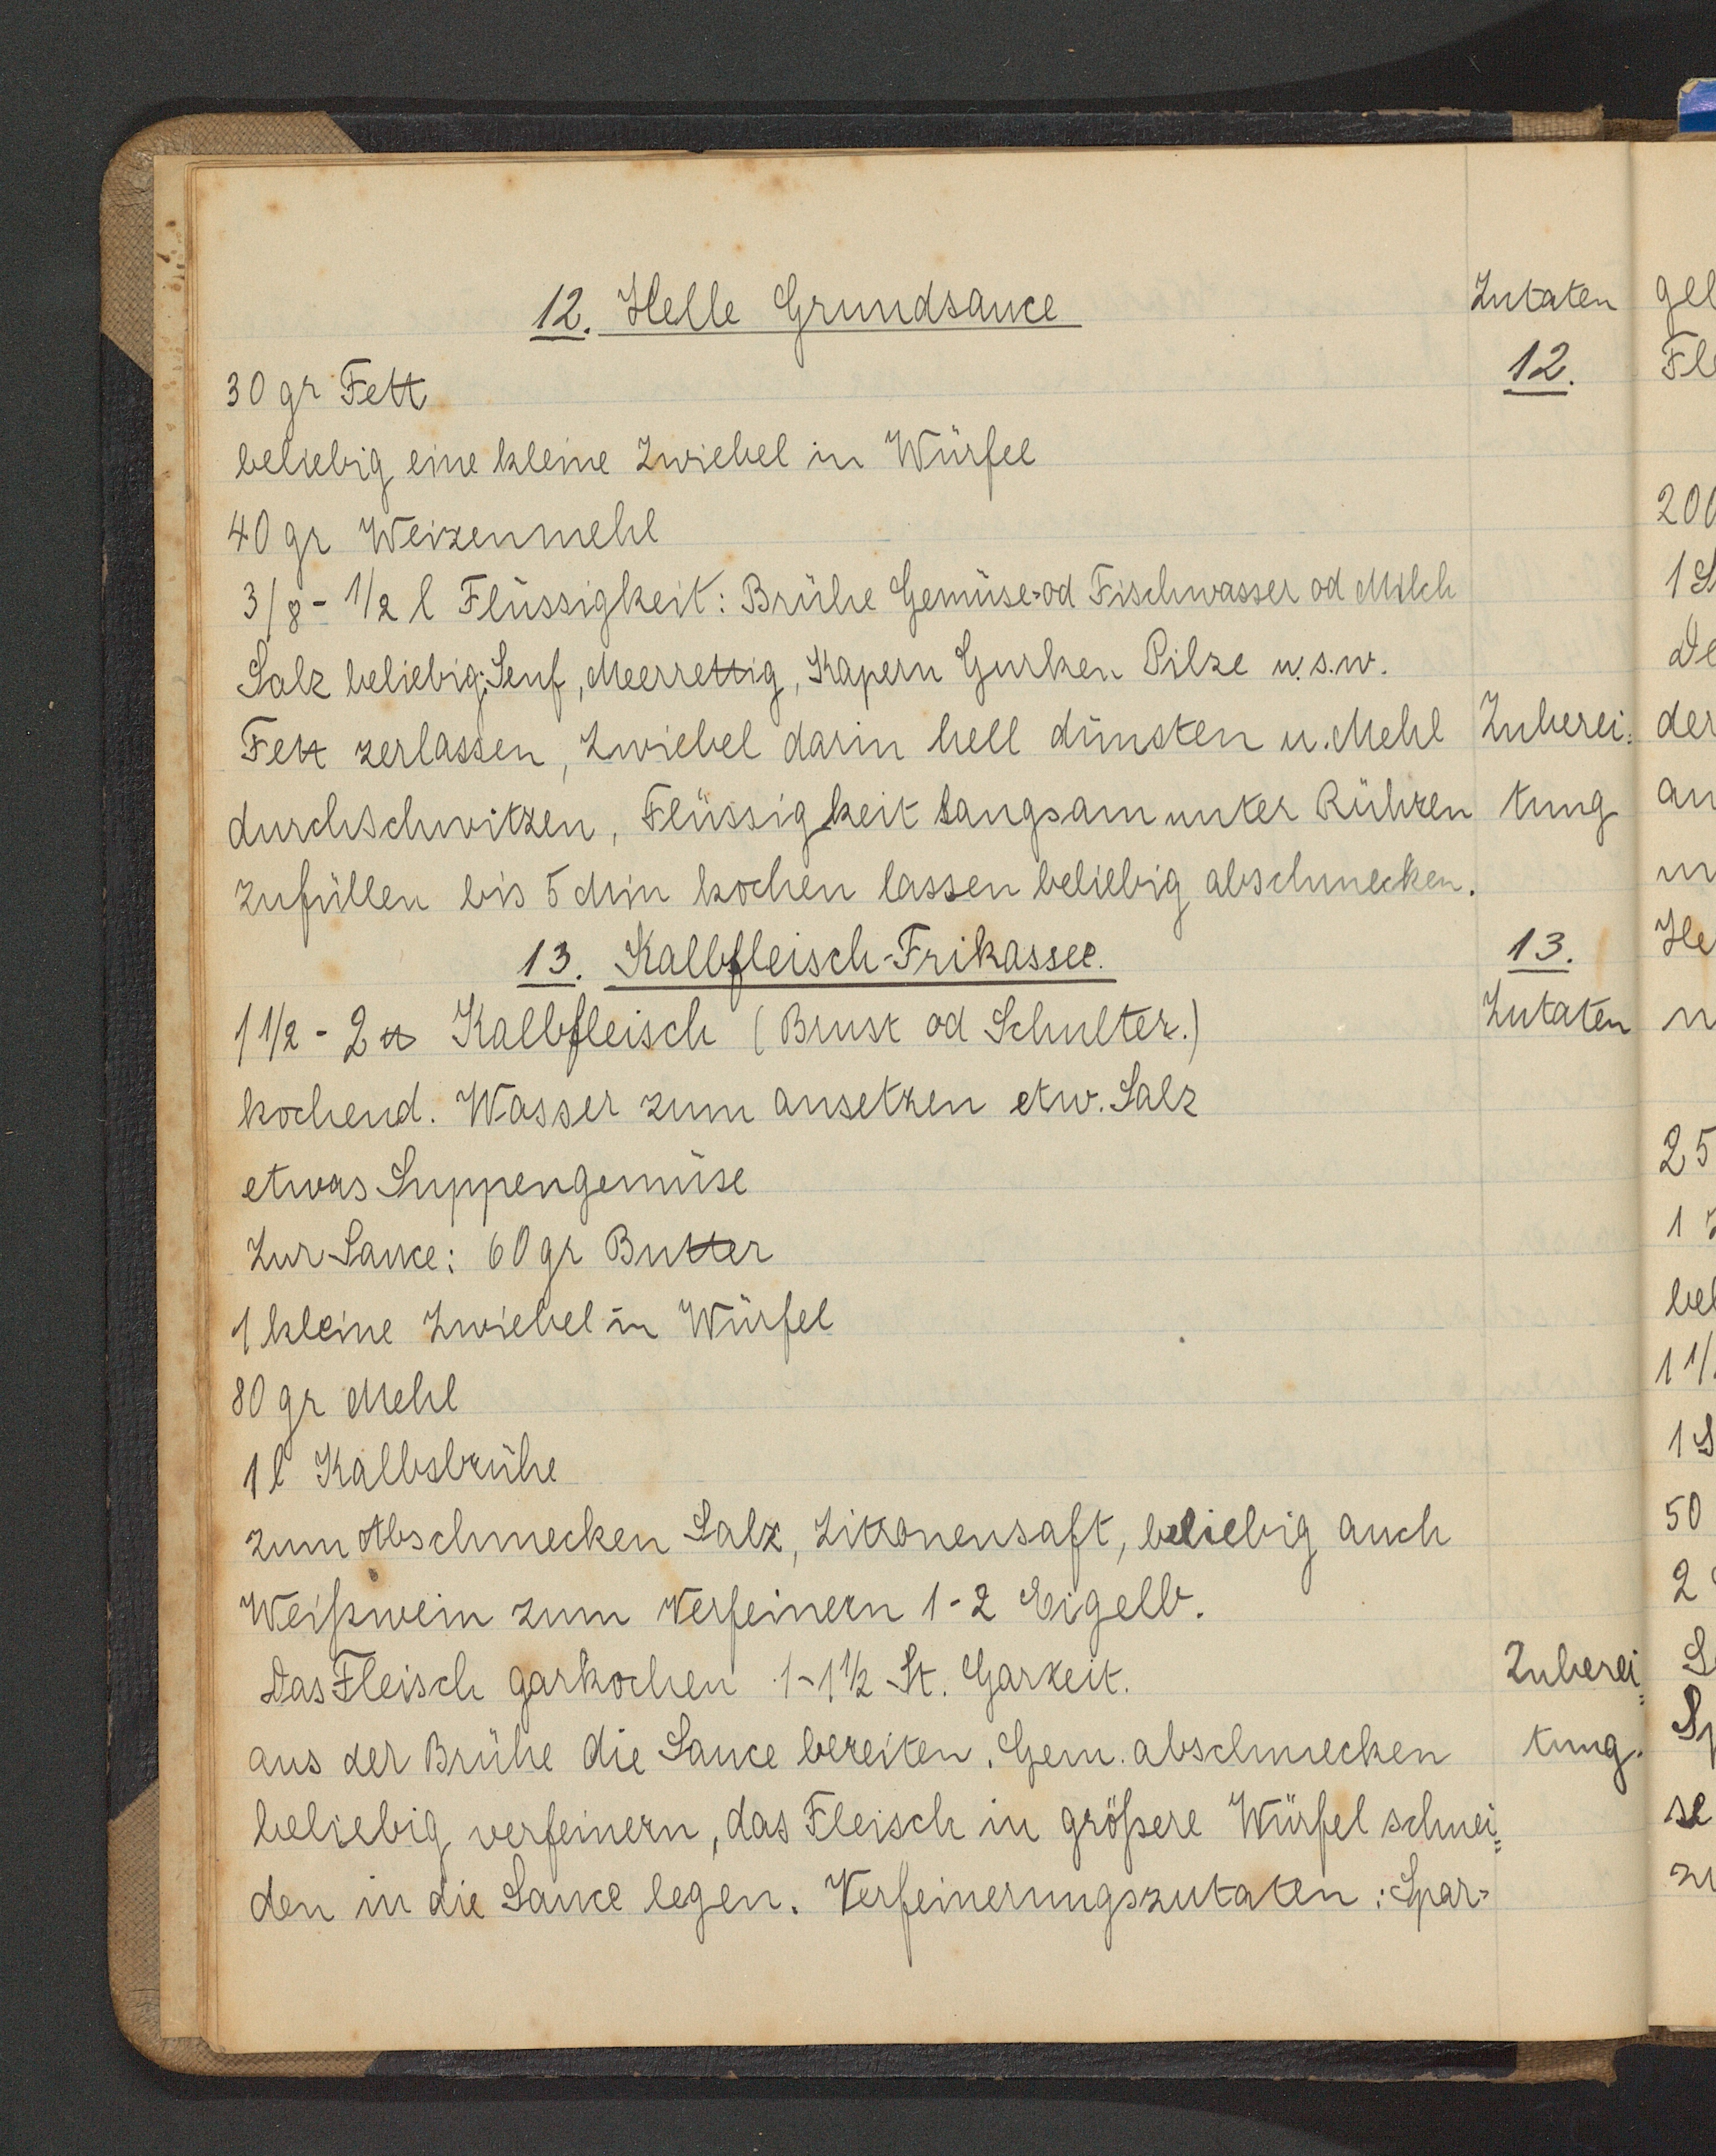 12. Helle Grundsauce
Zutaten
12.
30 gr Fett
beliebig eine kleine Zwiebel in Würfel
40 gr Weizenmehl
3/8 - 1/2 l Flüssigkeit: Brühe Gemüse= od Fischwasser od Milch
Salz beliebig; Senf, Meerrettig, Kapern Gurken Pilze u.s.w.
Fett zerlassen, Zwiebel darin hell dünsten u. Mehl
Zuberei=
durchschwitzen, Flüssigkeit langsam unter Rühren
tung
zufüllen bis 5 Min kochen lassen beliebig abschmecken.
13. Kalbfleisch-Frikassee.
13.
Zutaten
1 1/2 - 2 ℔ Kalbfleisch (Brust od Schulter.)
kochend. Wasser zum ansetzen etw. Salz
etwas Suppengemüse
Zur Sauce: 60 gr Butter
1 kleine Zwiebel in Würfel
80 gr Mehl
1 l Kalbsbrühe
zum Abschmecken Salz, Zitronensaft, beliebig auch
Weißwein zum Verfeinern 1-2 Eigelb.
Das Fleisch garkochen 1-1 1/2 St. Garzeit.
Zuberei=
aus der Brühe die Sauce bereiten. Gem. abschmecken
tung.
beliebig verfeinern, das Fleisch in größere Würfel schnei=
den in die Sauce legen. Verfeinerungszutaten: Spar=
gel
Fle
200
1
de
der
an
25
1
bel
1 1/
1
50
2
se
zu